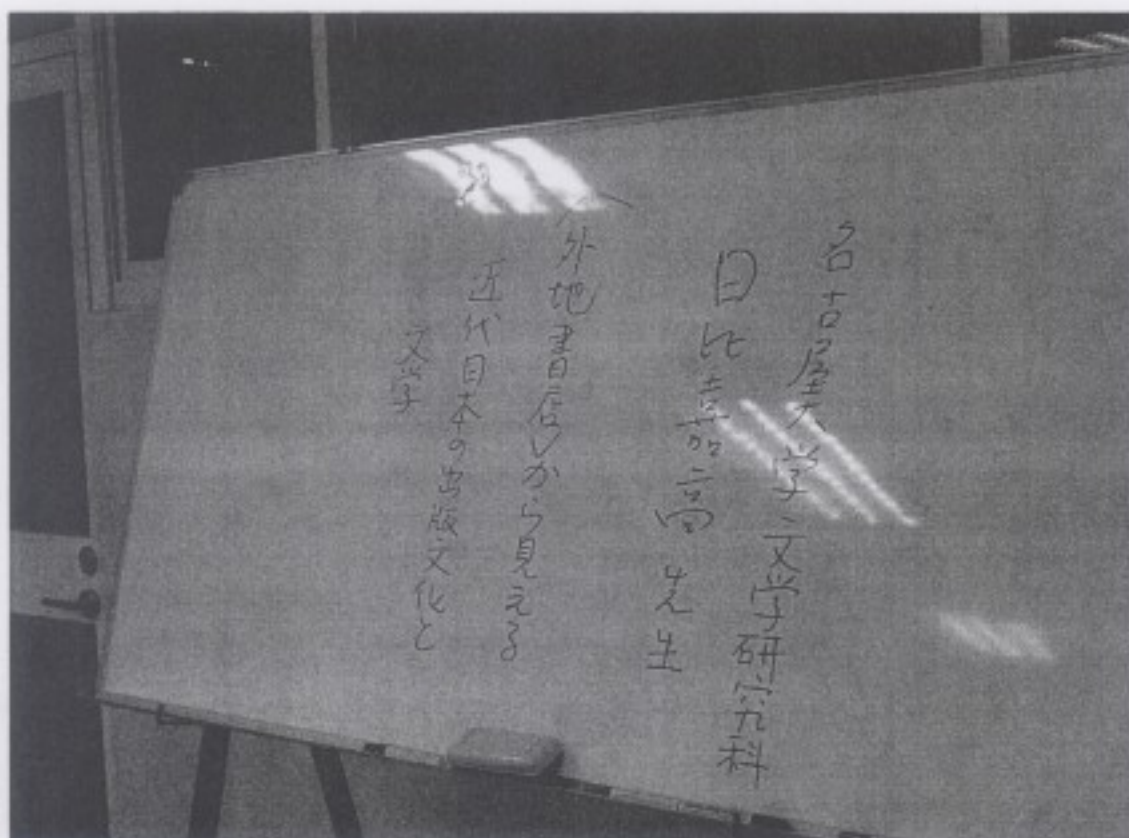 名古屋大学文学研究科
日比嘉高先生
外地書店から見える
近代日本の出版文化と
文学